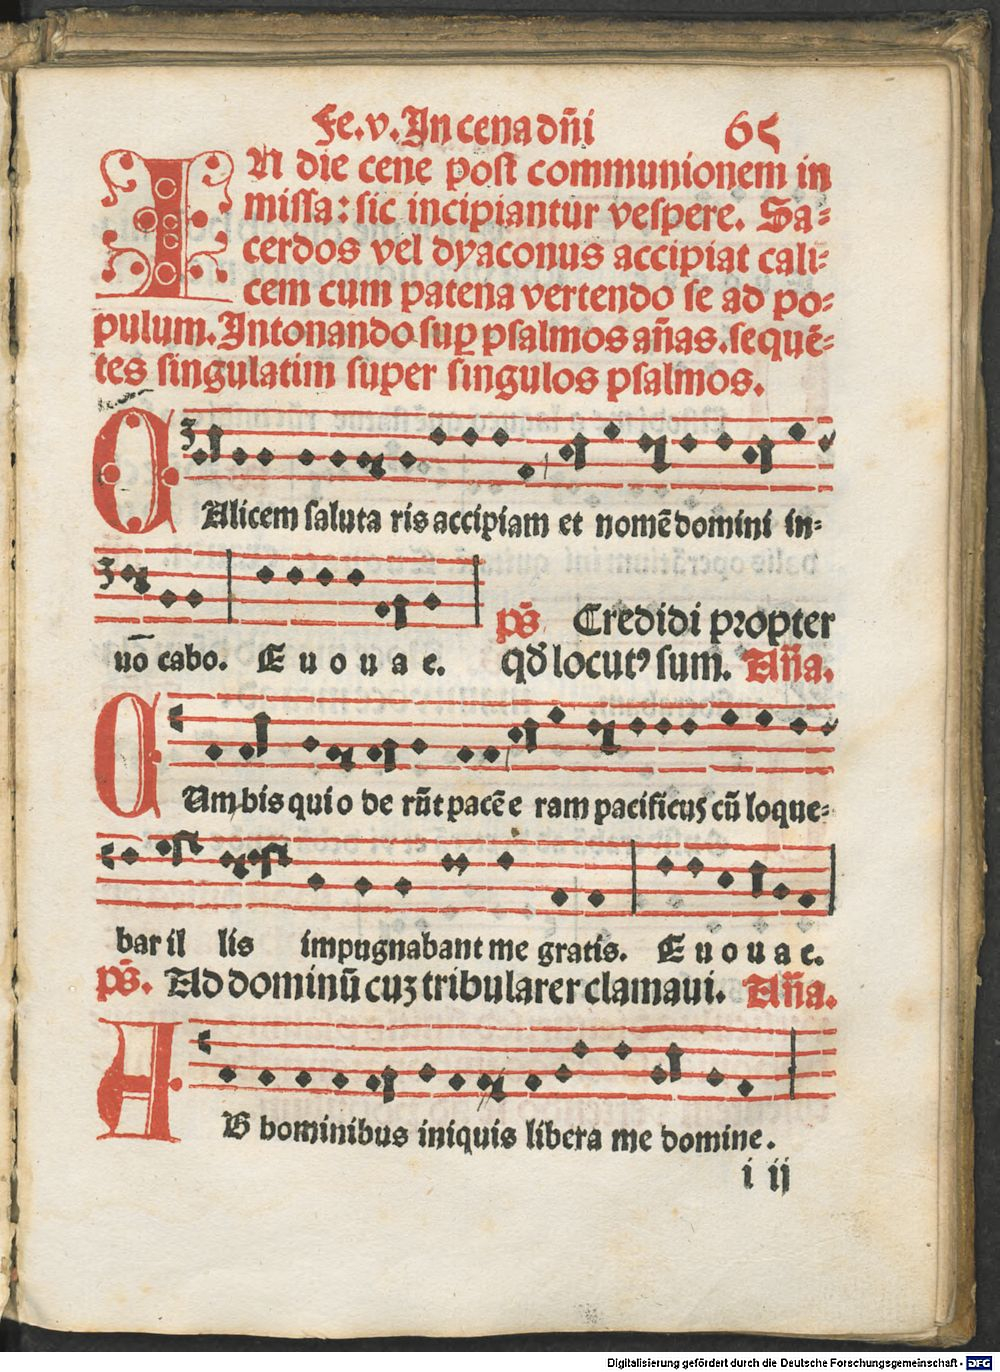 Fe.v. In cena dñi 65
IN die cene post communionem in
missa: sic incipiantur vespere. Sa-
cerdos vel dyaconus accipiat cali-
cem cum patena vertendo se ad po-
pulum. Intonando sup psalmos añas. sequē-
tes singulatim super singulos psalmos.
CAlicem saluta ris accipiam et nomē domini in-
uo cabo. E u o u a e.
ps̄ Credidi propter
qđ locutꝰ sum. Aña.
CUm his qui o de rūt pacē e ram pacificuȝ cū loque-
bar il lis impugnabant me gratis. E u o u a e.
ps̄. Ad dominū cuȝ tribularer clamaui. Aña.
AB hominibus iniquis libera me domine.
i ij
Digitalisierung gefördert durch die Deutsche Forschungsgemeinschaft - DFG